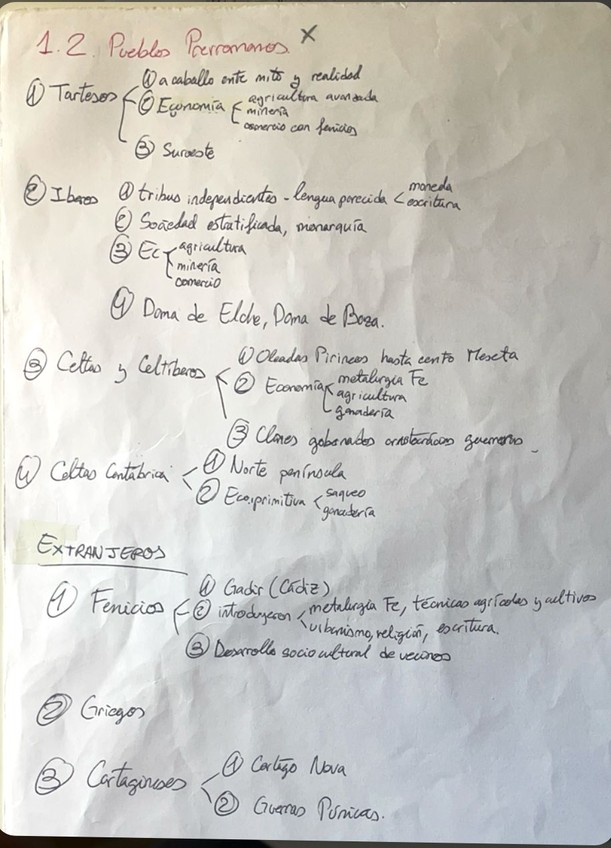 1.2. Pueblos Prerromanos. X
① Tartesos
① a caballo ente mito y realidad
② Economía
agricultura avanzada
minería
comercio con fenicios
③ Suroeste
② Iberos
① tribus independientes - lengua parecida
moneda
escritura
② Sociedad estratificada, monarquía
③ Ec
agricultura
minería
comercio
④ Dama de Elche, Dama de Baza.
③ Celtas y Celtíberos
① Oleadas Pirineos hasta cento Meseta
② Economía
metalurgia Fe
agricultura
ganadería
③ Clanes gobenados aristócratas guerreros
④ Celtas Cantábrica
① Norte península
② Eco.primitiva
saqueo
ganadería
EXTRANJEROS
① Fenicios
① Gadir (Cádiz)
② introdujeron
metalurgia Fe, técnicas agrícolas y cultivos
urbanismo, religión, escritura.
③ Desarrollo sociocultural de vecinos
② Griegos
③ Cartagineses
① Cartago Nova
② Guerras Púnicas.